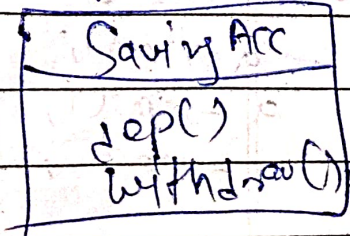 Saving Acc
dep()
withdraw()